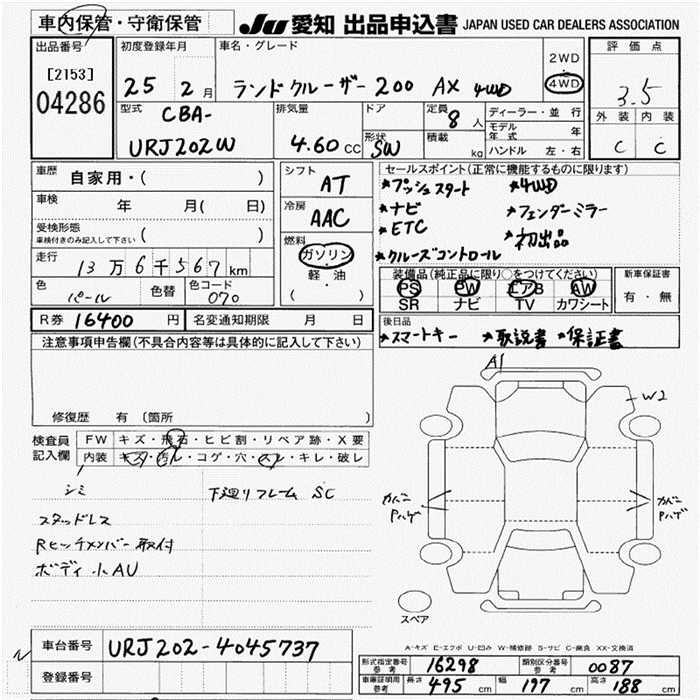 車内保管・守衛保管 JU 愛知 出品申込書 JAPAN USED CAR DEALERS ASSOCIATION
出品番号 初度登録年月 車名・グレード 2WD 評価点
[2153] 25 2月 ランドクルーザー 200 AX 4WD 4WD 3.5
04286 型式 CBA- 排気量 ドア 定員 8人 ディーラー・並行 外装 内装
URJ202W 4.60cc 形状 SW 積載 kg モデル年式 年
ハンドル 左・右 C C
車歴 自家用・( ) シフト AT セールスポイント(正常に機能するものに限ります)
車検 年 月( 日) 冷房 AAC *プッシュスタート *4WD
受検形態 ( ) *ナビ *フェンダーミラー
車検付きのみ記入して下さい 燃料 *ETC *初出品
走行 13万6千567km ガソリン *クルーズコントロール
色 パール 色替 色コード 070 軽・油 ( ) 装備品(純正品に限り○をつけてください) 新車保証書
PS PW エアB AW 有・無
SR ナビ TV カワシート
R券 16400円 名変通知期限 月 日 後日品
注意事項申告欄(不具合内容等は具体的に記入して下さい) *スマートキー *取説書 *保証書
A1
W2
修復歴 有 (箇所
検査員 FW キズ・飛石・ヒビ割・リペア跡・X要
記入欄 内装 キズ・汚レ・コゲ・穴・スレ・キレ・破レ
シミ 下廻リフレーム SC
スタッドレス カバー Pハゲ カバー Pハゲ
Rヒッチメンバー取付
ボディ小AU
スペア
車台番号 URJ202-4045737 A-キズ E-エクボ U-凹み W-補修跡 S-サビ C-腐食 XX-交換済
登録番号 型式指定番号 参考 16298 類別区分番号 参考 0087
車庫証明用 参考 長さ 495cm 幅 197cm 高さ 188cm